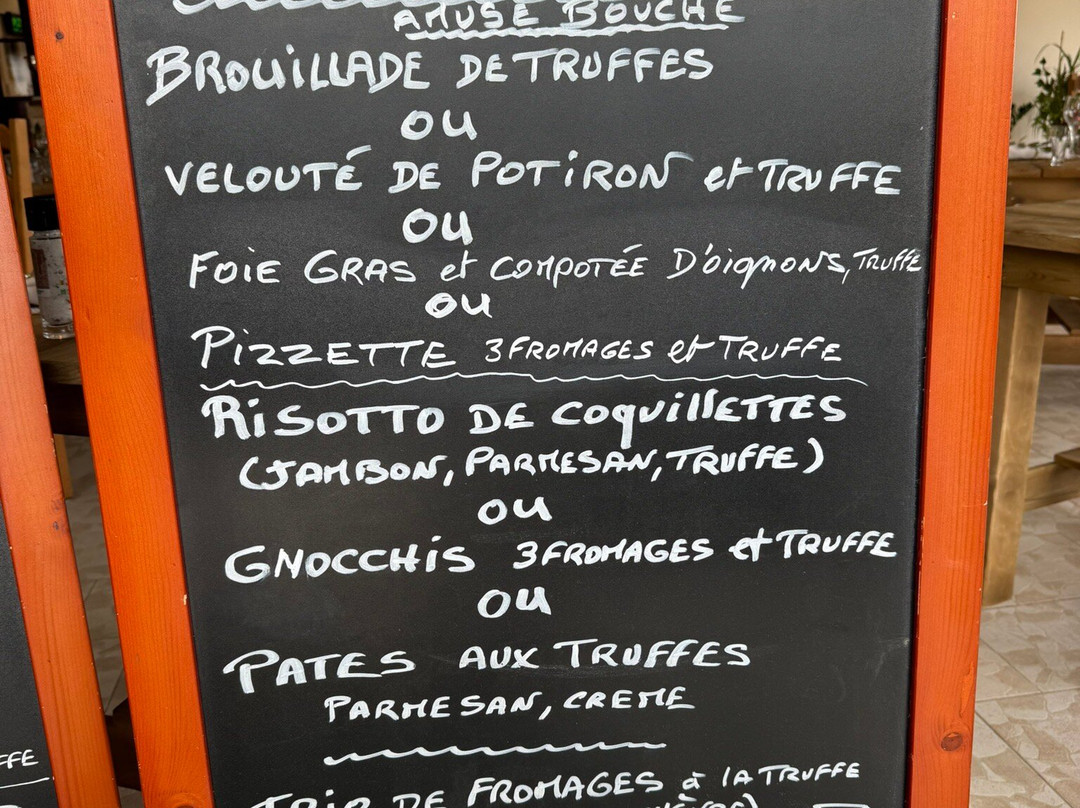 AMUSE BOUCHE
BROUiLLADE DE TRUFFES
OU
VELOUTÉ DE POTiRON et TRUFFE
OU
FOiE GRAS et COMPOTÉE D'OigNONS, TRUFFE
OU
PiZZETTE 3 FROMAGES et TRUFFE
RiSOTTO DE COQUiLLETTES
(JAMBON, PARMESAN, TRUFFE)
OU
GNOCCHiS 3 FROMAGES et TRUFFE
OU
PATES AUX TRUFFES
PARMESAN, CREME
TRIO DE FROMAGES à LA TRUFFE
FFE